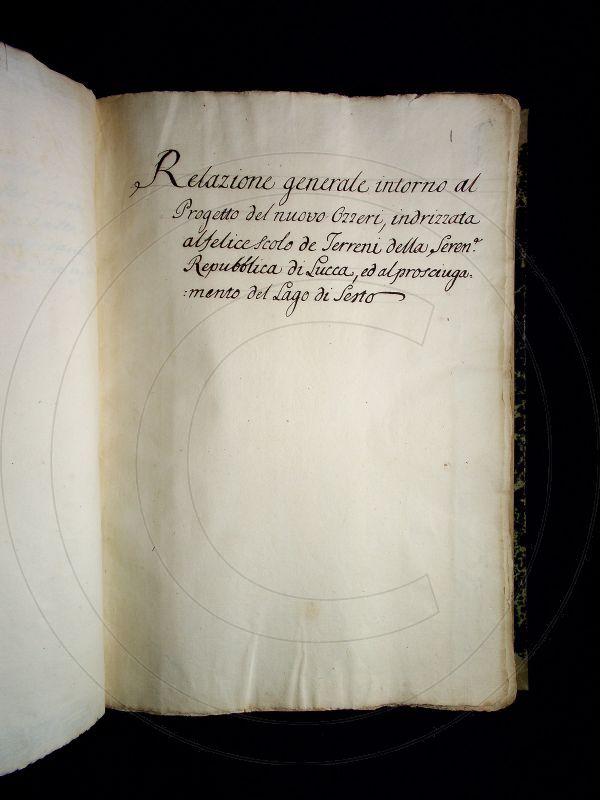 Relazione generale intorno al
Progetto del nuovo Ozzeri, indrizzata
al felice scolo de Terreni della Seren.ª
Repubblica di Lucca, ed al prosciuga:
:mento del Lago di Sesto